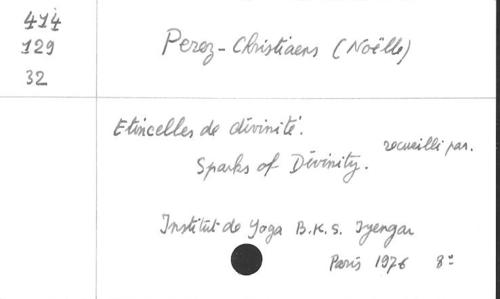 414
129
32
Perez-Christiaens (Noëlle)
Etincelles de divinité.
recueilli par.
Sparks of Divinity.
Institut de Yoga B.K.S. Iyengar
Paris 1976 8°